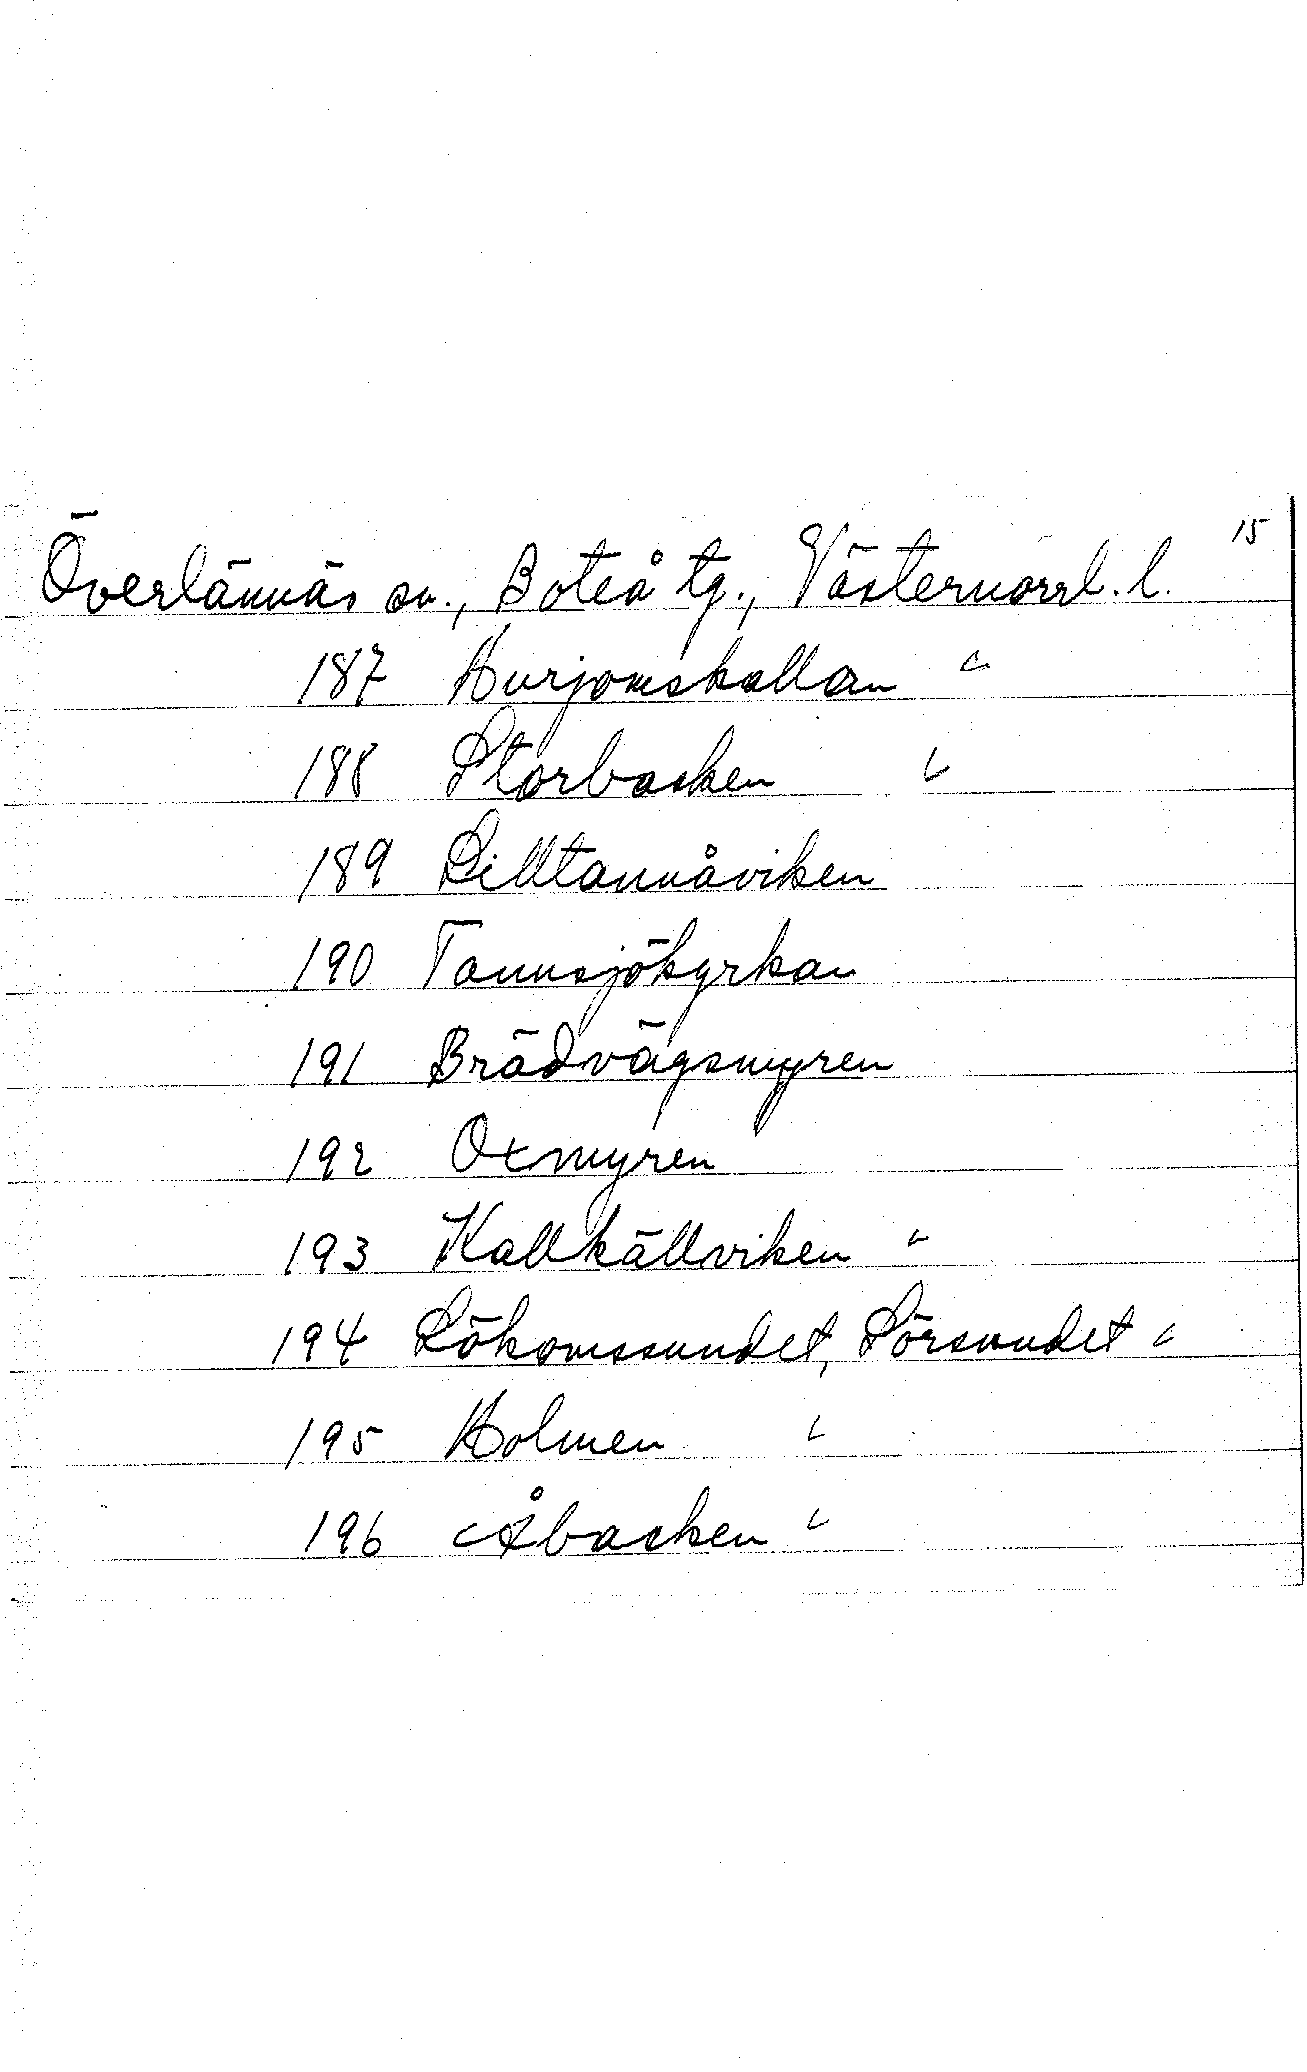 15
Överlännäs sn., Boteå tg., Västernorrl. l.
187 Hurjomskallan "
188 Storbacken "
189 Lilltannåviken
190 Tannsjökyrkan
191 Brädvägsmyren
192 Oxmyren
193 Kallkällviken "
194 Lökomssundet, Sörsundet "
195 Holmen "
196 Åbacken "